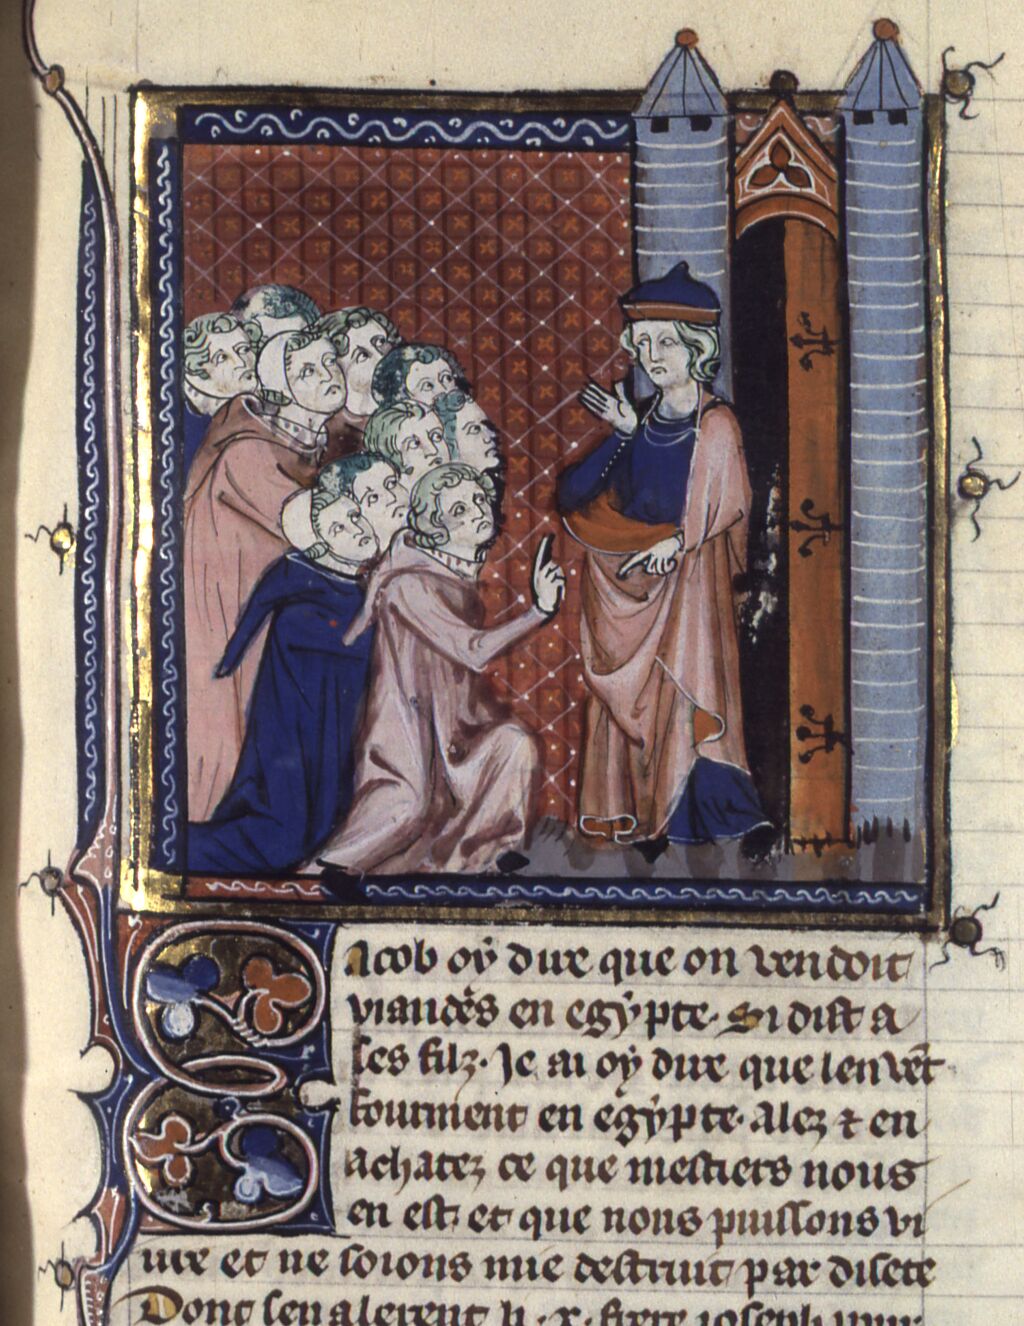 Jacob oÿ dire que on vendoit
viandes en egÿpte. Si dist a
ses filz. Je ai oÿ dire que len vēt
fourment en egÿpte. alez ⁊ en
achatez ce que mestiers nous
en est. et que nous puissons vi
ure et ne soions mie destruit par disete
Donc sen alerent li .x. frere ioseph